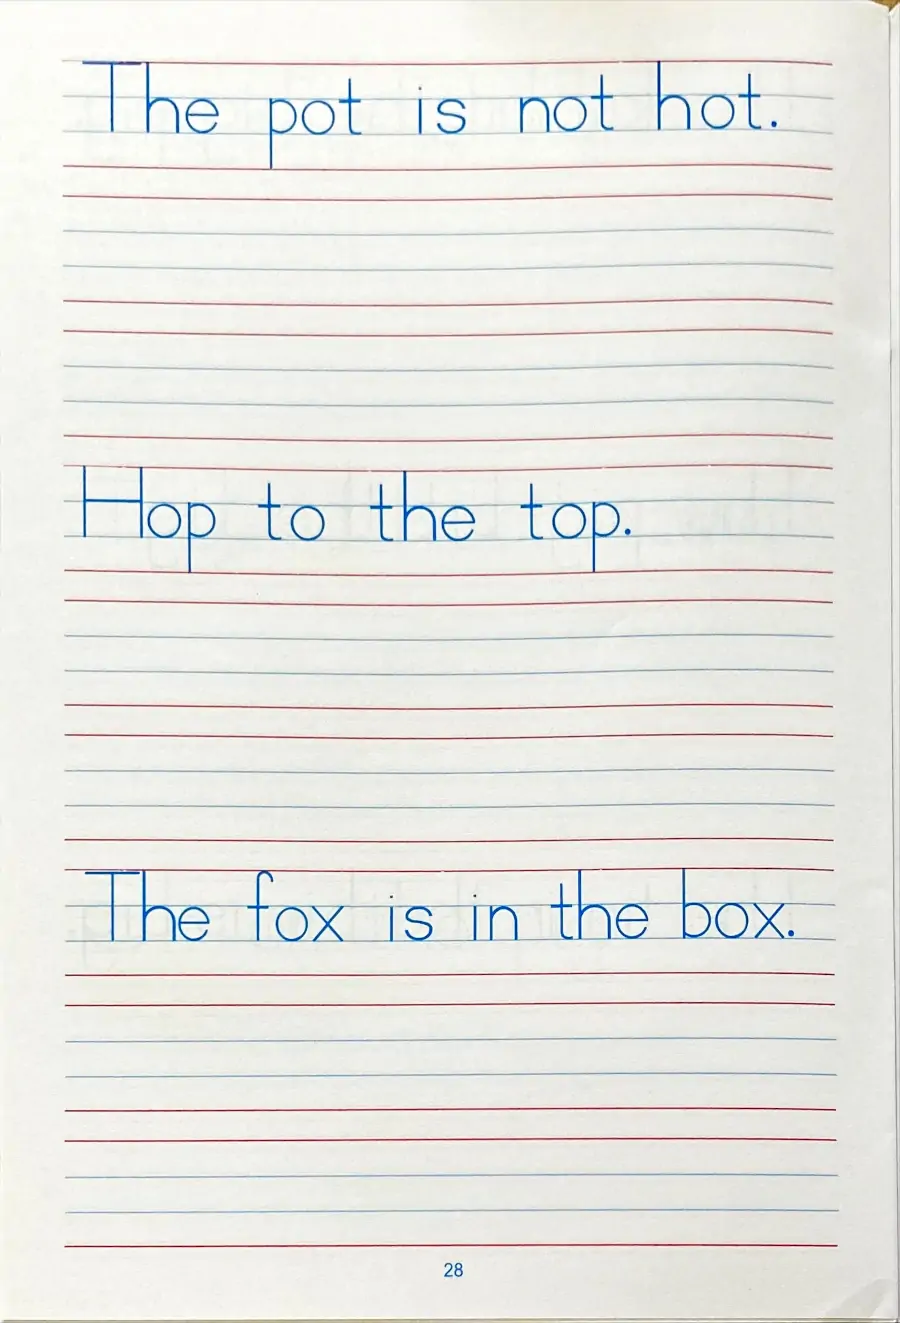 The pot is not hot.
Hop to the top.
The fox is in the box.
28